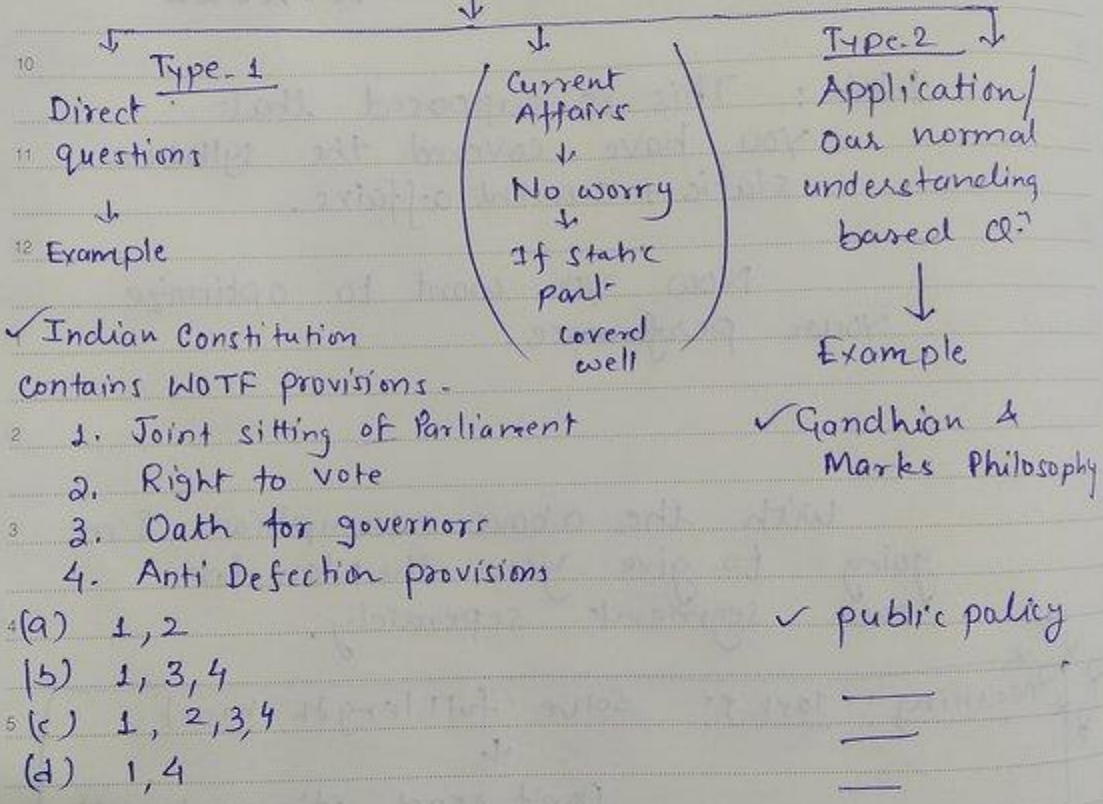 Type-1
Direct
questions
Example
✓ Indian Constitution
contains WOTF provisions.
1. Joint sitting of Parliament
2. Right to vote
3. Oath for governors
4. Anti Defection provisions
(a) 1, 2
(b) 1, 3, 4
(c) 1, 2, 3, 4
(d) 1, 4
Current
Affairs
No worry
If static
part
coverd
well
Type-2
Application/
our normal
understanding
based Q?
Example
✓ Gandhian &
Marks Philosophy
✓ public policy
10
11
12
2
3
4
5